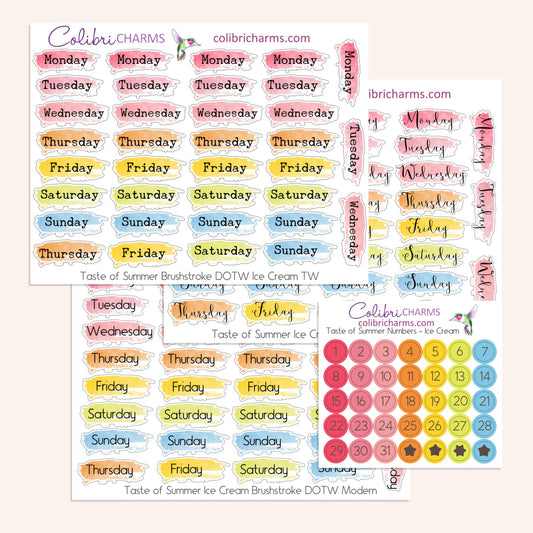 Colibri CHARMS colibricharms.com
Monday Monday Monday Monday Monday
Tuesday Tuesday Tuesday Tuesday
Wednesday Wednesday Wednesday Wednesday
Thursday Thursday Thursday Thursday Tuesday
Friday Friday Friday Friday
Saturday Saturday Saturday Saturday
Sunday Sunday Sunday Sunday Wednesday
Thursday Friday Saturday Sunday
Taste of Summer Brushstroke DOTW Ice Cream TW
colibricharms.com
Monday Monday
Tuesday
Wednesday
Thursday Tuesday
Friday
Saturday
Sunday
Thursday Friday
Taste of Summer Ice C
Colibri CHARMS
colibricharms.com
Taste of Summer Numbers - Ice Cream
1 2 3 4 5 6 7
8 9 10 11 12 13 14
15 16 17 18 19 20 21
22 23 24 25 26 27 28
29 30 31
Tuesday
Wednesday
Thursday Thursday Thursday Thursday
Friday Friday Friday Friday
Saturday Saturday Saturday Saturday
Sunday Sunday Sunday Sunday
Thursday Friday Saturday Sunday
Taste of Summer Ice Cream Brushstroke DOTW Modern